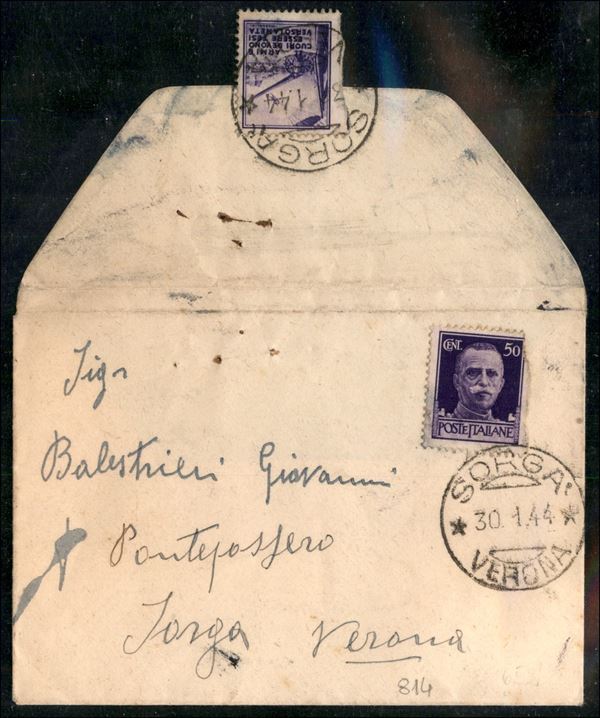 ARMI E
CUORI DEVONO
ESSERE TESI
VERSO LA META
1.44
SORGA'
CENT. 50
POSTE ITALIANE
SORGA'
* 30.1.44 *
VERONA
Sigr
Balestrieri Giovanni
Pontepossero
Sorga Verona
814